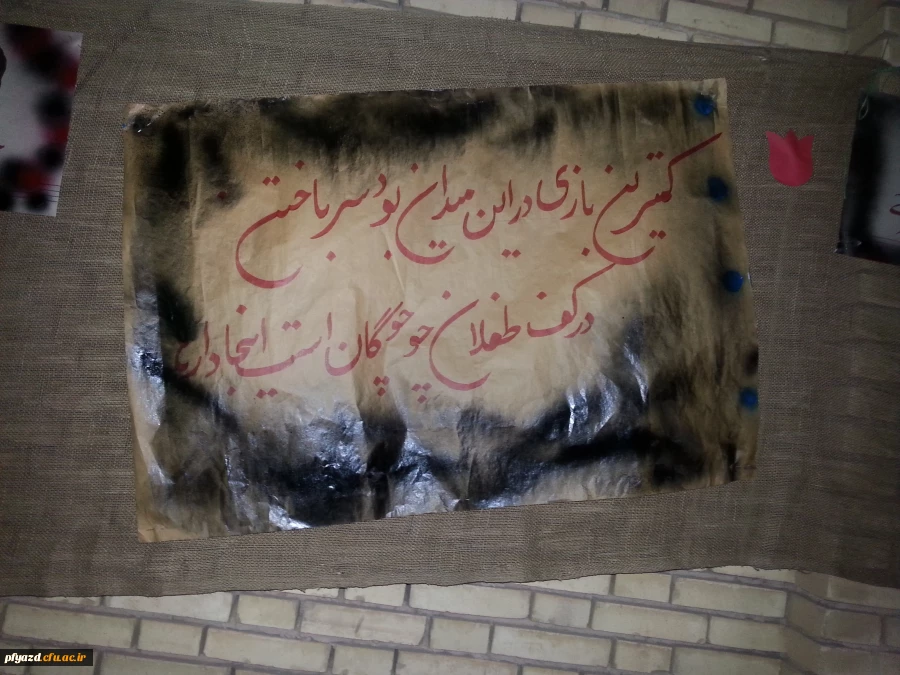 کمترین بازی در این میدان بود سر باختن
در کف طفلان چو چوگان است اینجا دار
pfyazd.cfu.ac.ir